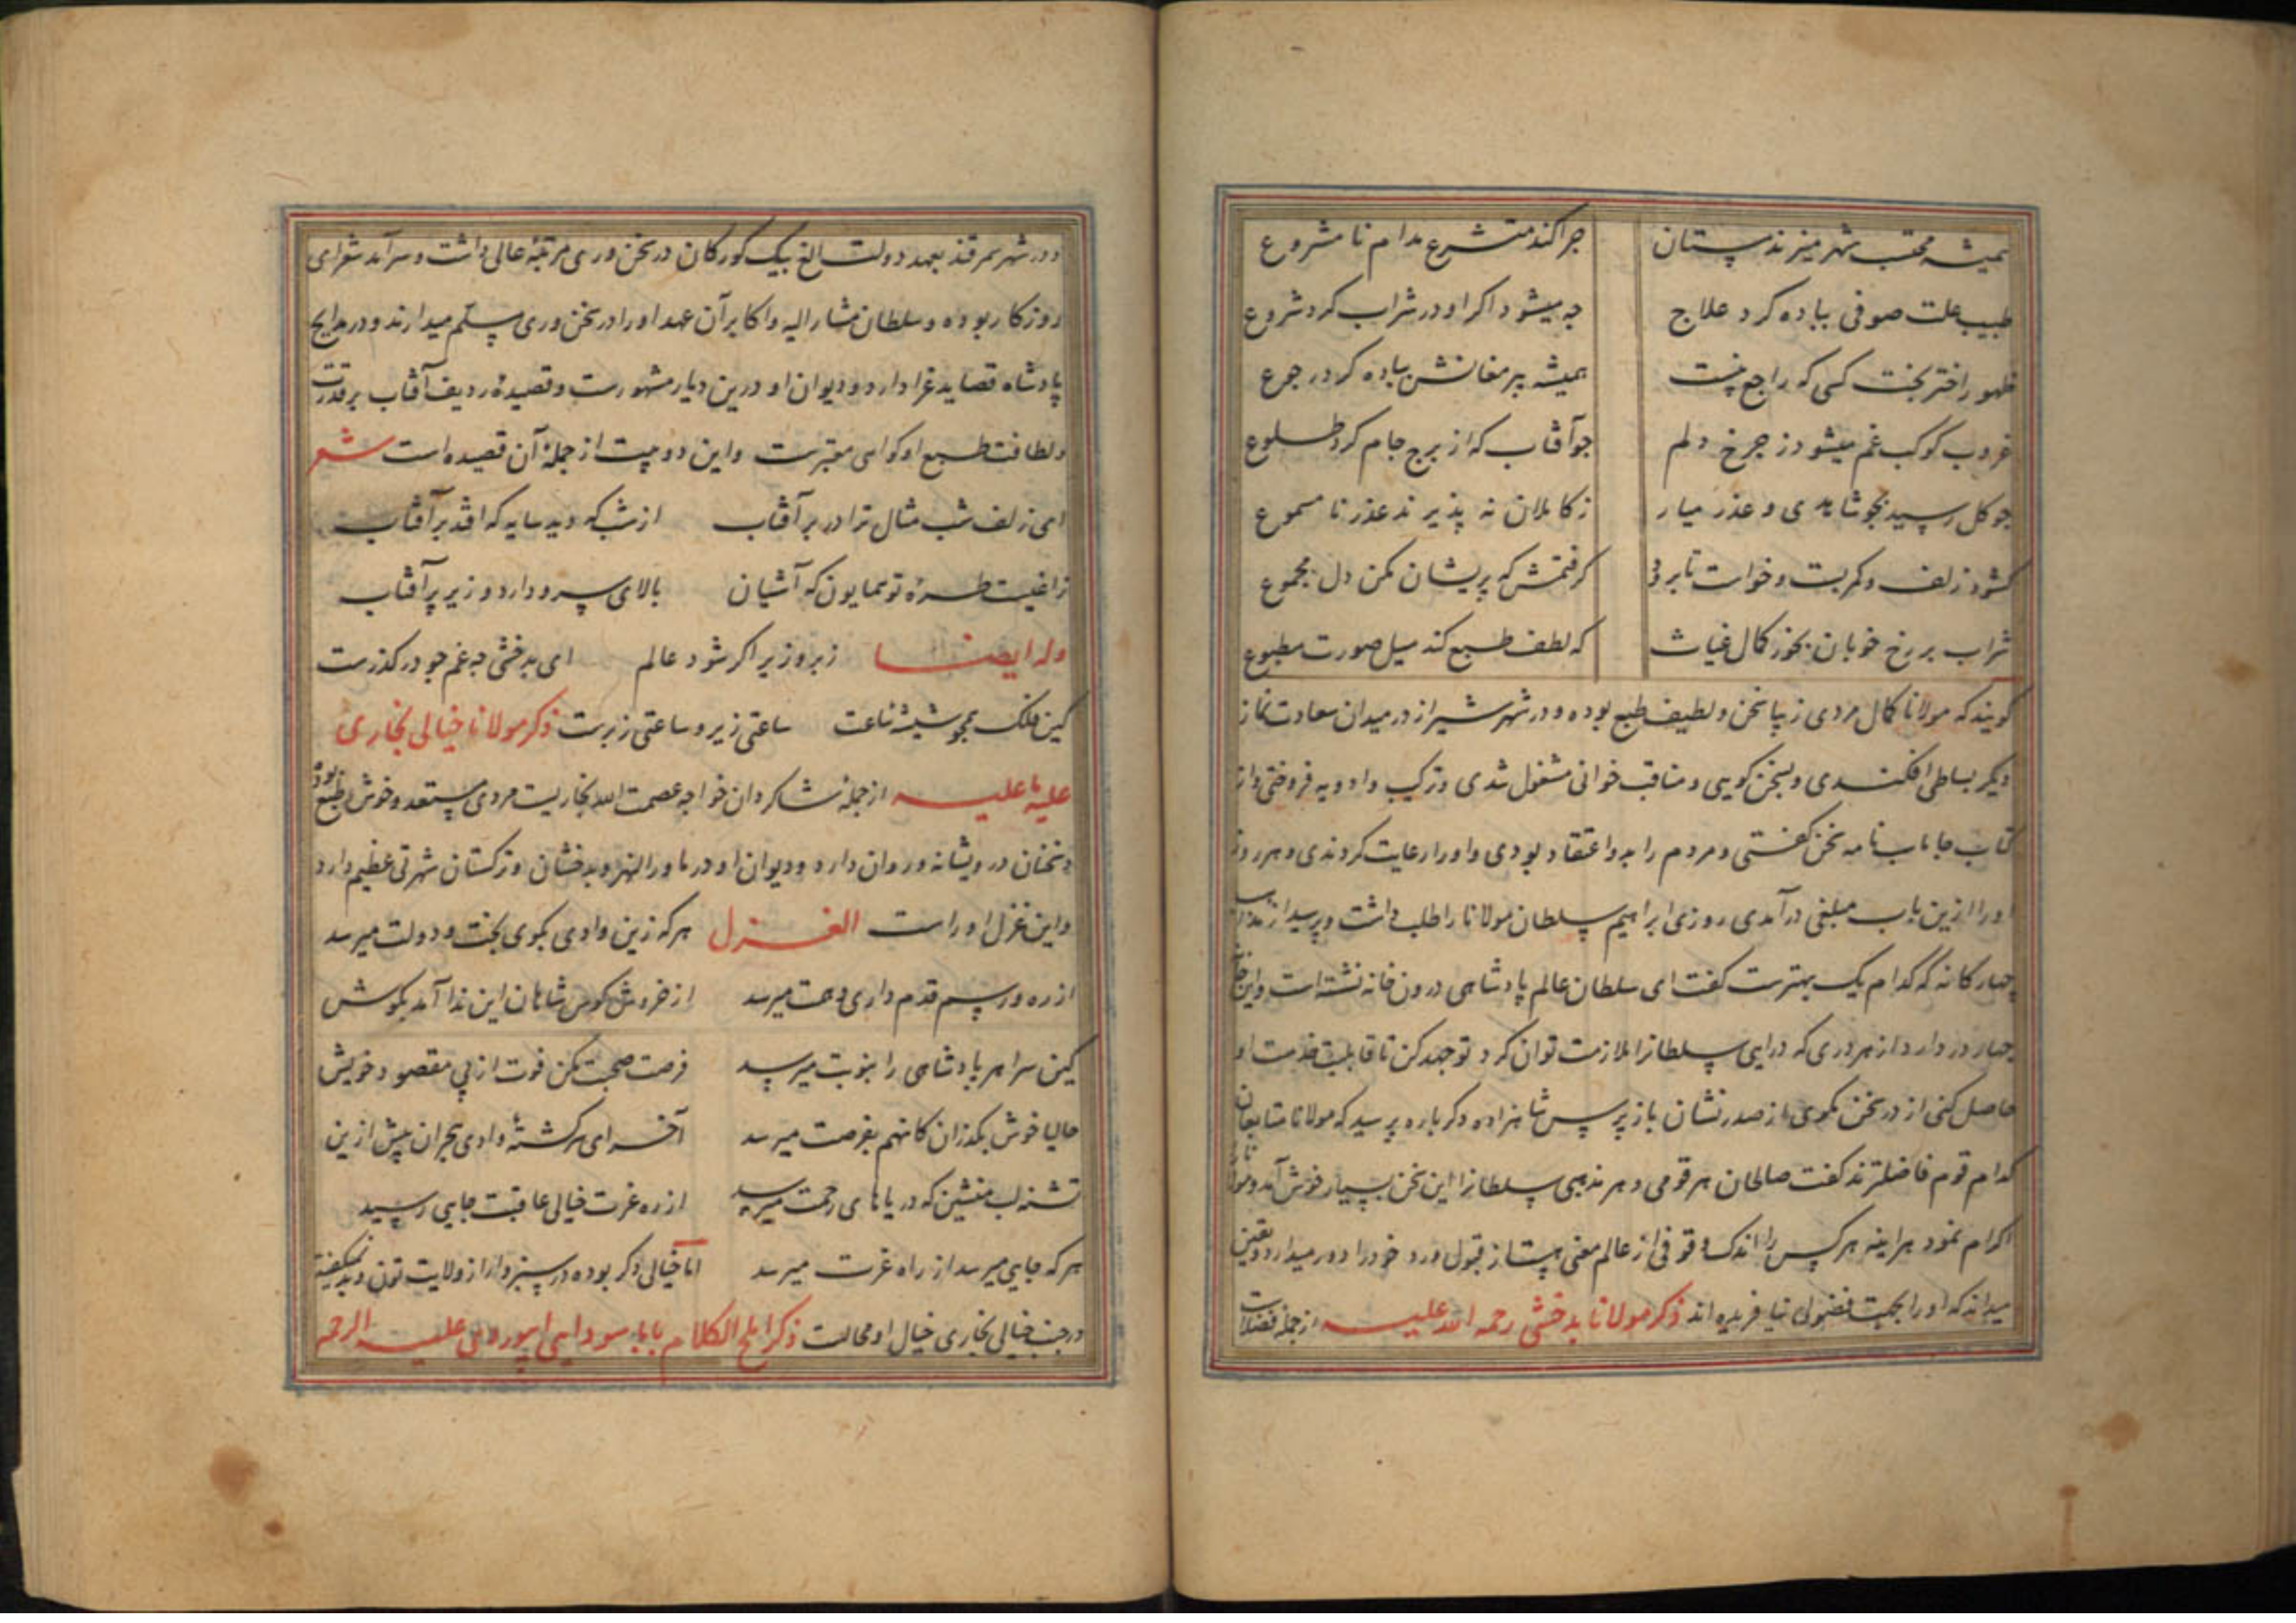 همیشه محتسب شهر میزند پستان چرا کند متشرع مدام نا مشروع
طبیب علت صوفی بباده کرد علاج چه میشود اکر او در شراب کرد شروع
ظهور اختر بخت کسی که راجع نیست همیشه پیر مغانش بباده کرد رجوع
غروب کوکب غم میشود ز چرخ دلم چو آفتاب که از برج جام کرد طلوع
چو کل رسید بجو شاهدی و عذر میار ز کاملان نه پذیرند عذر نا مسموع
کشود زلف و کمر بست و خواست تا برود کرفتمش که پریشان مکن دل مجموع
شراب بر رخ خوبان بخور کمال غیاث که لطف طبع کند میل صورت مطبوع
کویند که مولانا کمال مردی زیبا سخن و لطیف طبع بوده و در شهر شیراز در میدان سعادت نماز
دیکر بساطی افکندی و بسخن کویی و مناقب خوانی مشغول شدی و ترکیب و ادویه فروختی و از
کتاب جاماسب نامه سخن کفتی و مردم را بدو اعتقاد بودی و او را رعایت کردندی و هر روز
او را ازین باب مبلغی در آمدی روزی ابراهیم سلطان مولانا را طلب داشت و پرسید از مذاهب
چهار کانه که کدام یک بهترست کفت ای سلطان عالم پادشاهی درون خانه نشسته است و این خانه
چهار در دارد از هر دری که درایی سلطانرا ملازمت توان کرد تو جهد کن تا قابلیت خدمت او
حاصل کنی از در سخن مکوی از صدر نشان باز پرس شاهزاده دکر باره پرسید که مولانا متابعان
کدام قوم فاضلترند کفت صالحان هر قومی و هر مذهبی سلطانرا این سخن بسیار خوش آمد و مولانا را
اکرام نمود هراینه هر کس را اندک وقوفی از عالم معنی هست از قبول و رد خود را دور میدارد و یقین
میداند که او را بجهت فضولی نیافریده اند ذکر مولانا بدخشی رحمه الله علیه از جمله فضلاست
و در شهر سمرقند بعهد دولت الغ بیک کورکان در سخن وری مرتبهٔ عالی داشت و سرآمد شعرای
روزکار بوده و سلطان مشار الیه و اکابر آن عهد او را در سخن وری مسلم میدارند و در مدایح
پادشاه قصاید غرا دارد و دیوان او درین دیار مشهورست و قصیدهٔ ردیف آفتاب بر قدرت
و لطافت طبع او کواهی معتبرست و این دو بیت از جملهٔ آن قصیده است شعر
ای زلف شب مثال ترا در بر آفتاب از شب که دید سایه که افتد بر آفتاب
زاغیست طرهٔ تو همایون که آشیان بالای سرو دارد و زیر پر آفتاب
وله ایضا زیر و زبر اکر شود عالم ای بدخشی چه غم چو در کذرست
کین فلک همچو شیشهٔ ساعت ساعتی زیر و ساعتی زبرست ذکر مولانا خیالی بخاری
علیه ما علیه از جمله شاکردان خواجه عصمت الله بخاریست مردی مستعد و خوش طبع بوده
و سخنان درویشانه و روان دارد و دیوان او در ماورالنهر و بدخشان و ترکستان شهرتی عظیم دارد
و این غزل او راست الغزل هر که زین وادی بکوی بخت و دولت میرسد
از ره و رسم قدم داری و همت میرسد از خروش کوس شاهان این ندا آمد بکوش
کین سرا هر پادشاهی را بنوبت میرسد فرصت صحبت مکن فوت از پی مقصود خویش
حالیا خوش بکذران کانهم بفرصت میرسد آخر ای سرکشتهٔ وادی هجران بیش ازین
تشنه لب منشین که دریاهای رحمت میرسد از ره عزت خیالی عاقبت جایی رسید
هر که جایی میرسد از راه عزت میرسد اما خیالی دکر بوده در سبزوار از ولایت تون و بد نمیکفته
در جنب خیالی بخاری خیال او محالست ذکر املح الکلام بابا سودایی ابیوردی علیه الرحمه